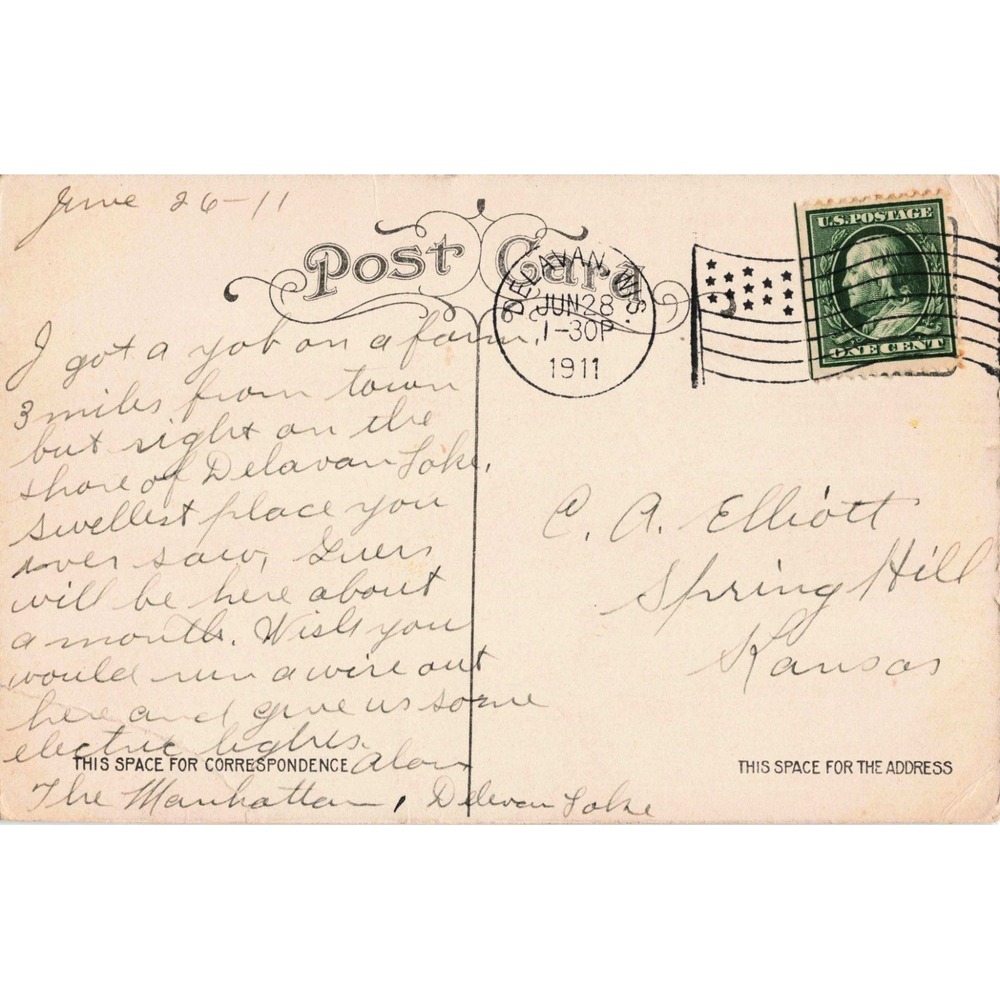 June 26-11
Post Card
DELAVAN, WIS.
JUN 28
1-30P
1911
U.S. POSTAGE
ONE CENT
I got a yob on a farm,
3 miles from town
but right on the
shore of Delavan Lake.
Swellest place you
ever saw,
will be here about
a month. Wish you
would run a wire out
here and give us some
electric lights.
The Manhattan, Delevan Lake
THIS SPACE FOR CORRESPONDENCE
C. A. Elliott
Spring Hill
Kansas
THIS SPACE FOR THE ADDRESS